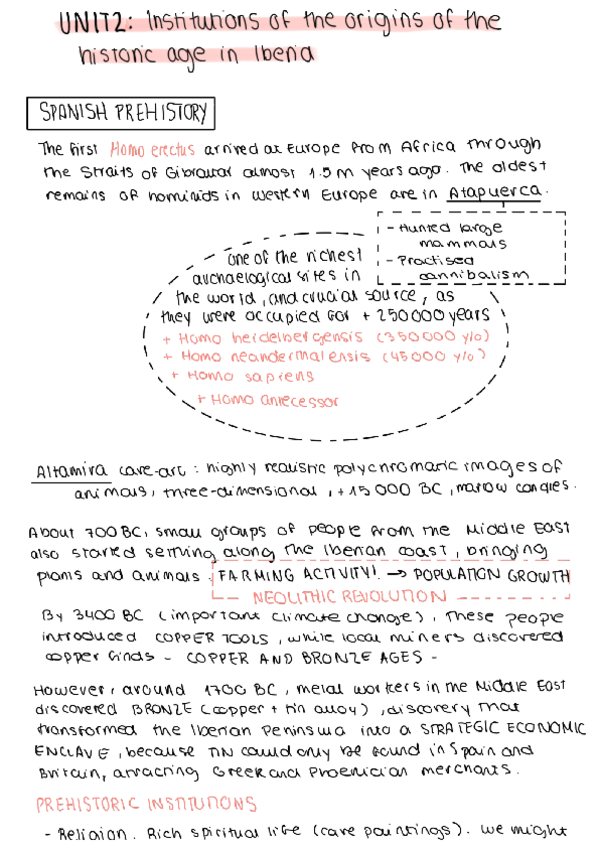 UNIT2: Institutions of the origins of the
historic age in Iberia
SPANISH PREHISTORY
The first Homo erectus arrived at Europe from Africa through
the Straits of Gibraltar almost 1.5 M years ago. The oldest
remains of hominids in western Europe are in Atapuerca.
- Hunted large
mammals
- Practised
cannibalism
one of the richest
archaelogical sites in
the world, and crucial source, as
they were occupied for + 250000 years
+ Homo heidelbergensis (350000 y/o)
+ Homo neandermalensis (45000 y/o)
+ Homo sapiens
+ Homo antecessor
Altamira cave-art: highly realistic polychromatic images of
animals, three-dimensional, +15 000 BC, marrow candles.
About 700 BC, small groups of people from the Middle East
also started settling along the Iberian coast, bringing
plants and animals. FARMING ACTIVITY! → POPULATION GROWTH
NEOLITHIC REVOLUTION
By 3400 BC (important climate change), these people
introduced COPPER TOOLS, while local miners discovered
copper finds - COPPER AND BRONZE AGES -
However, around 1700 BC, metal workers in the Middle East
discovered BRONZE (copper + tin alloy), discovery that
transformed the Iberian Peninsula into a STRATEGIC ECONOMIC
ENCLAVE, because TIN could only be found in Spain and
Britain, attracting Greek and Phoenician merchants.
PREHISTORIC INSTITUTIONS
- Religion. Rich spiritual life (cave paintings). We might